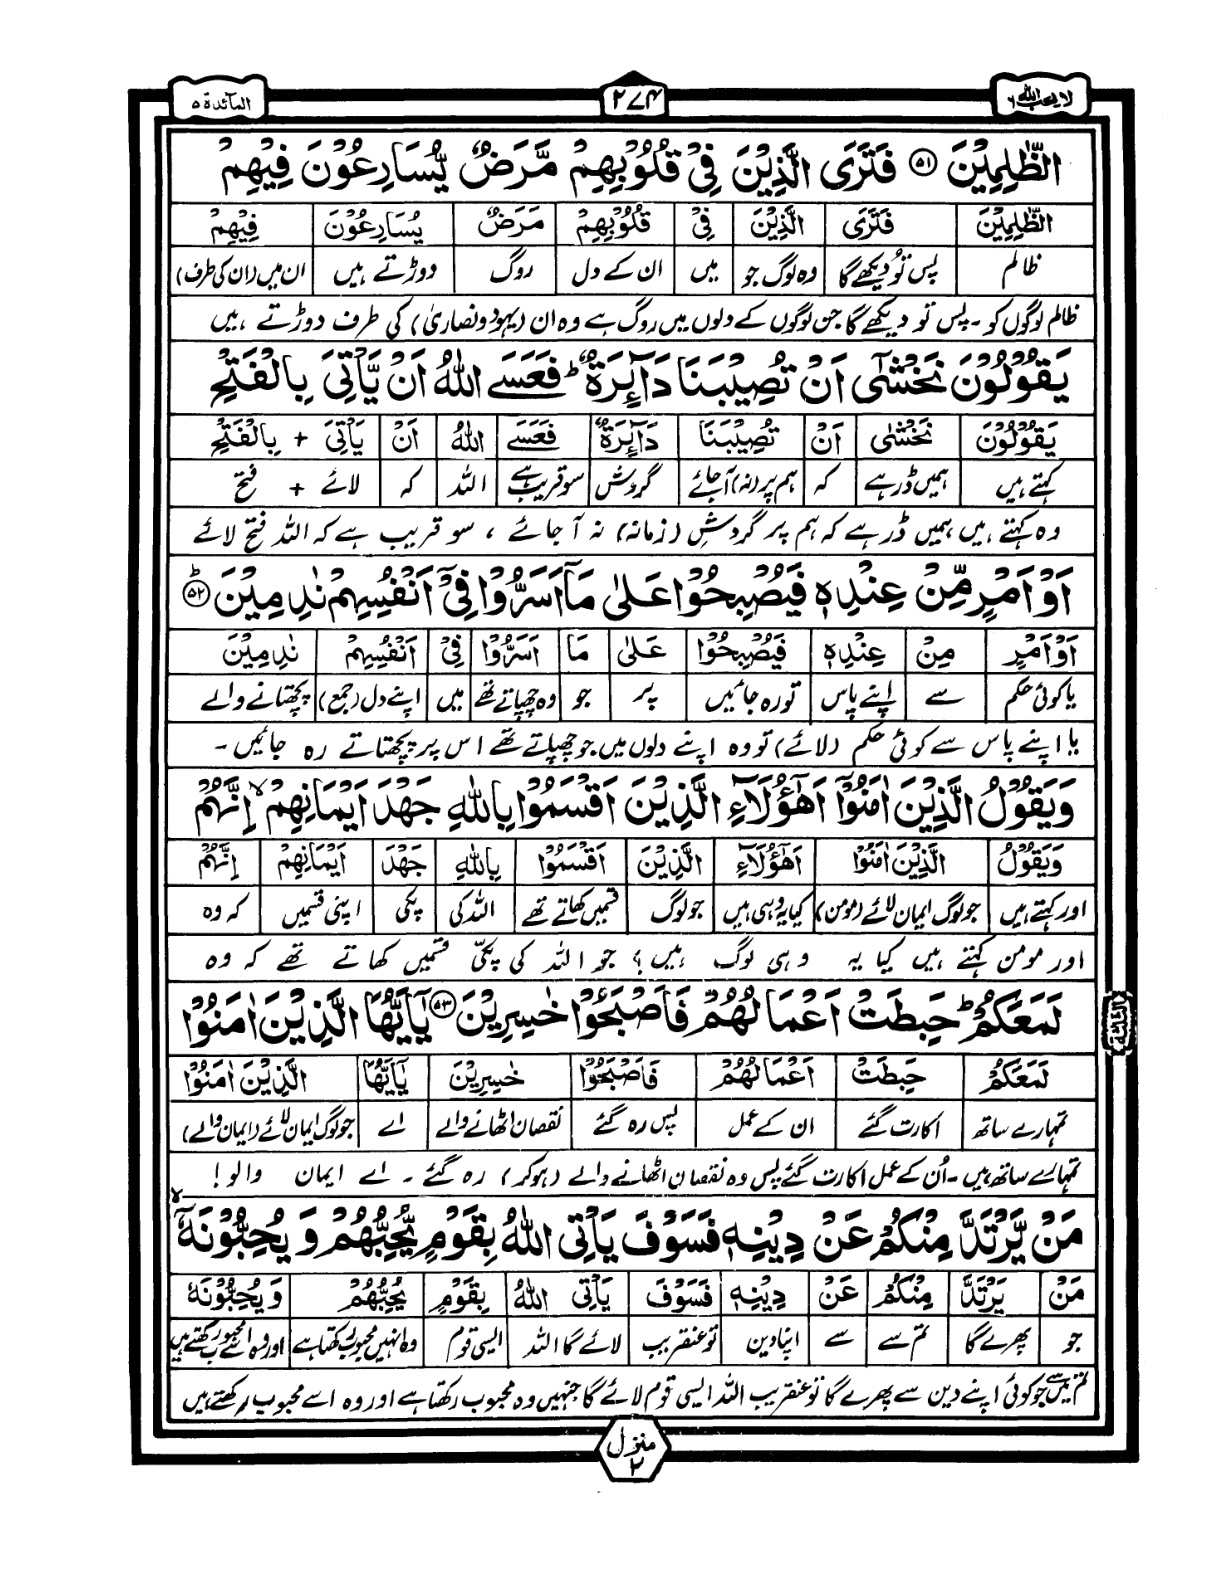 لا یحب اللہ ۶
۲۷۴
المآئدۃ ۵
الظّٰلِمِیۡنَ ﴿۵۱﴾ فَتَرَی الَّذِیۡنَ فِیۡ قُلُوۡبِہِمۡ مَّرَضٌ یُّسَارِعُوۡنَ فِیۡہِمۡ
الظّٰلِمِیۡنَ فَتَرَی الَّذِیۡنَ فِیۡ قُلُوۡبِہِمۡ مَرَضٌ یُسَارِعُوۡنَ فِیۡہِمۡ
ظالم پس تُو دیکھے گا وہ لوگ جو میں ان کے دل روگ دوڑتے ہیں ان میں (ان کی طرف)
ظالم لوگوں کو ۔ پس تو دیکھے گا جن لوگوں کے دلوں میں روگ ہے وہ ان (یہود و نصاریٰ) کی طرف دوڑتے ہیں
یَقُوۡلُوۡنَ نَخۡشٰۤی اَنۡ تُصِیۡبَنَا دَآئِرَۃٌ ؕ فَعَسَی اللّٰہُ اَنۡ یَّاۡتِیَ بِالۡفَتۡحِ
یَقُوۡلُوۡنَ نَخۡشٰۤی اَنۡ تُصِیۡبَنَا دَآئِرَۃٌ فَعَسَی اللّٰہُ اَنۡ یَاۡتِیَ + بِالۡفَتۡحِ
کہتے ہیں ہمیں ڈر ہے کہ ہم پر (نہ) آجائے گردش سو قریب ہے اللہ کہ لائے + فتح
وہ کہتے ہیں ہمیں ڈر ہے کہ ہم پر گردشِ (زمانہ) نہ آ جائے ، سو قریب ہے کہ اللہ فتح لائے
اَوۡ اَمۡرٍ مِّنۡ عِنۡدِہٖ فَیُصۡبِحُوۡا عَلٰی مَاۤ اَسَرُّوۡا فِیۡۤ اَنۡفُسِہِمۡ نٰدِمِیۡنَ ﴿ؕ۵۲﴾
اَوۡ اَمۡرٍ مِنۡ عِنۡدِہٖ فَیُصۡبِحُوۡا عَلٰی مَا اَسَرُّوۡا فِیۡ اَنۡفُسِہِمۡ نٰدِمِیۡنَ
یا کوئی حکم سے اپنے پاس تو رہ جائیں پر جو وہ چھپاتے تھے میں اپنے دل (جمع) پچھتانے والے
یا اپنے پاس سے کوئی حکم (لائے) تو وہ اپنے دلوں میں جو چھپاتے تھے اس پر پچھتاتے رہ جائیں ۔
وَیَقُوۡلُ الَّذِیۡنَ اٰمَنُوۡۤا اَہٰۤؤُلَآءِ الَّذِیۡنَ اَقۡسَمُوۡا بِاللّٰہِ جَہۡدَ اَیۡمَانِہِمۡ ۙ اِنَّہُمۡ
وَیَقُوۡلُ الَّذِیۡنَ اٰمَنُوۡا اَہٰۤؤُلَآءِ الَّذِیۡنَ اَقۡسَمُوۡا بِاللّٰہِ جَہۡدَ اَیۡمَانِہِمۡ اِنَّہُمۡ
اور کہتے ہیں جو لوگ ایمان لائے (مومن) کیا یہ وہی ہیں جو لوگ قسمیں کھاتے تھے اللہ کی پکی اپنی قسمیں کہ وہ
اور مومن کہتے ہیں کیا یہ وہی لوگ ہیں ؟ جو اللہ کی پکّی قسمیں کھاتے تھے کہ وہ
لَمَعَکُمۡ ؕ حَبِطَتۡ اَعۡمَالُہُمۡ فَاَصۡبَحُوۡا خٰسِرِیۡنَ ﴿۵۳﴾ یٰۤاَیُّہَا الَّذِیۡنَ اٰمَنُوۡا
الثلثة
لَمَعَکُمۡ حَبِطَتۡ اَعۡمَالُہُمۡ فَاَصۡبَحُوۡا خٰسِرِیۡنَ یٰۤاَیُّہَا الَّذِیۡنَ اٰمَنُوۡا
تمہارے ساتھ اکارت گئے ان کے عمل پس رہ گئے نقصان اٹھانے والے اے جو لوگ ایمان لائے (ایمان والے)
تمہارے ساتھ ہیں ۔ اُن کے عمل اکارت گئے پس وہ نقصان اٹھانے والے (ہوکر) رہ گئے ۔ اے ایمان والو !
مَنۡ یَّرۡتَدَّ مِنۡکُمۡ عَنۡ دِیۡنِہٖ فَسَوۡفَ یَاۡتِی اللّٰہُ بِقَوۡمٍ یُّحِبُّہُمۡ وَیُحِبُّوۡنَہٗۤ ۙ
مَنۡ یَرۡتَدَّ مِنۡکُمۡ عَنۡ دِیۡنِہٖ فَسَوۡفَ یَاۡتِی اللّٰہُ بِقَوۡمٍ یُحِبُّہُمۡ وَیُحِبُّوۡنَہٗۤ
جو پھرے گا تم سے سے اپنا دین تو عنقریب لائے گا اللہ ایسی قوم وہ انہیں محبوب رکھتا ہے اور وہ اسے محبوب رکھتے ہیں
تم میں سے جو کوئی اپنے دین سے پھرے گا تو عنقریب اللہ ایسی قوم لائے گا جنہیں وہ محبوب رکھتا ہے اور وہ اسے محبوب رکھتے ہیں
منزل ۲